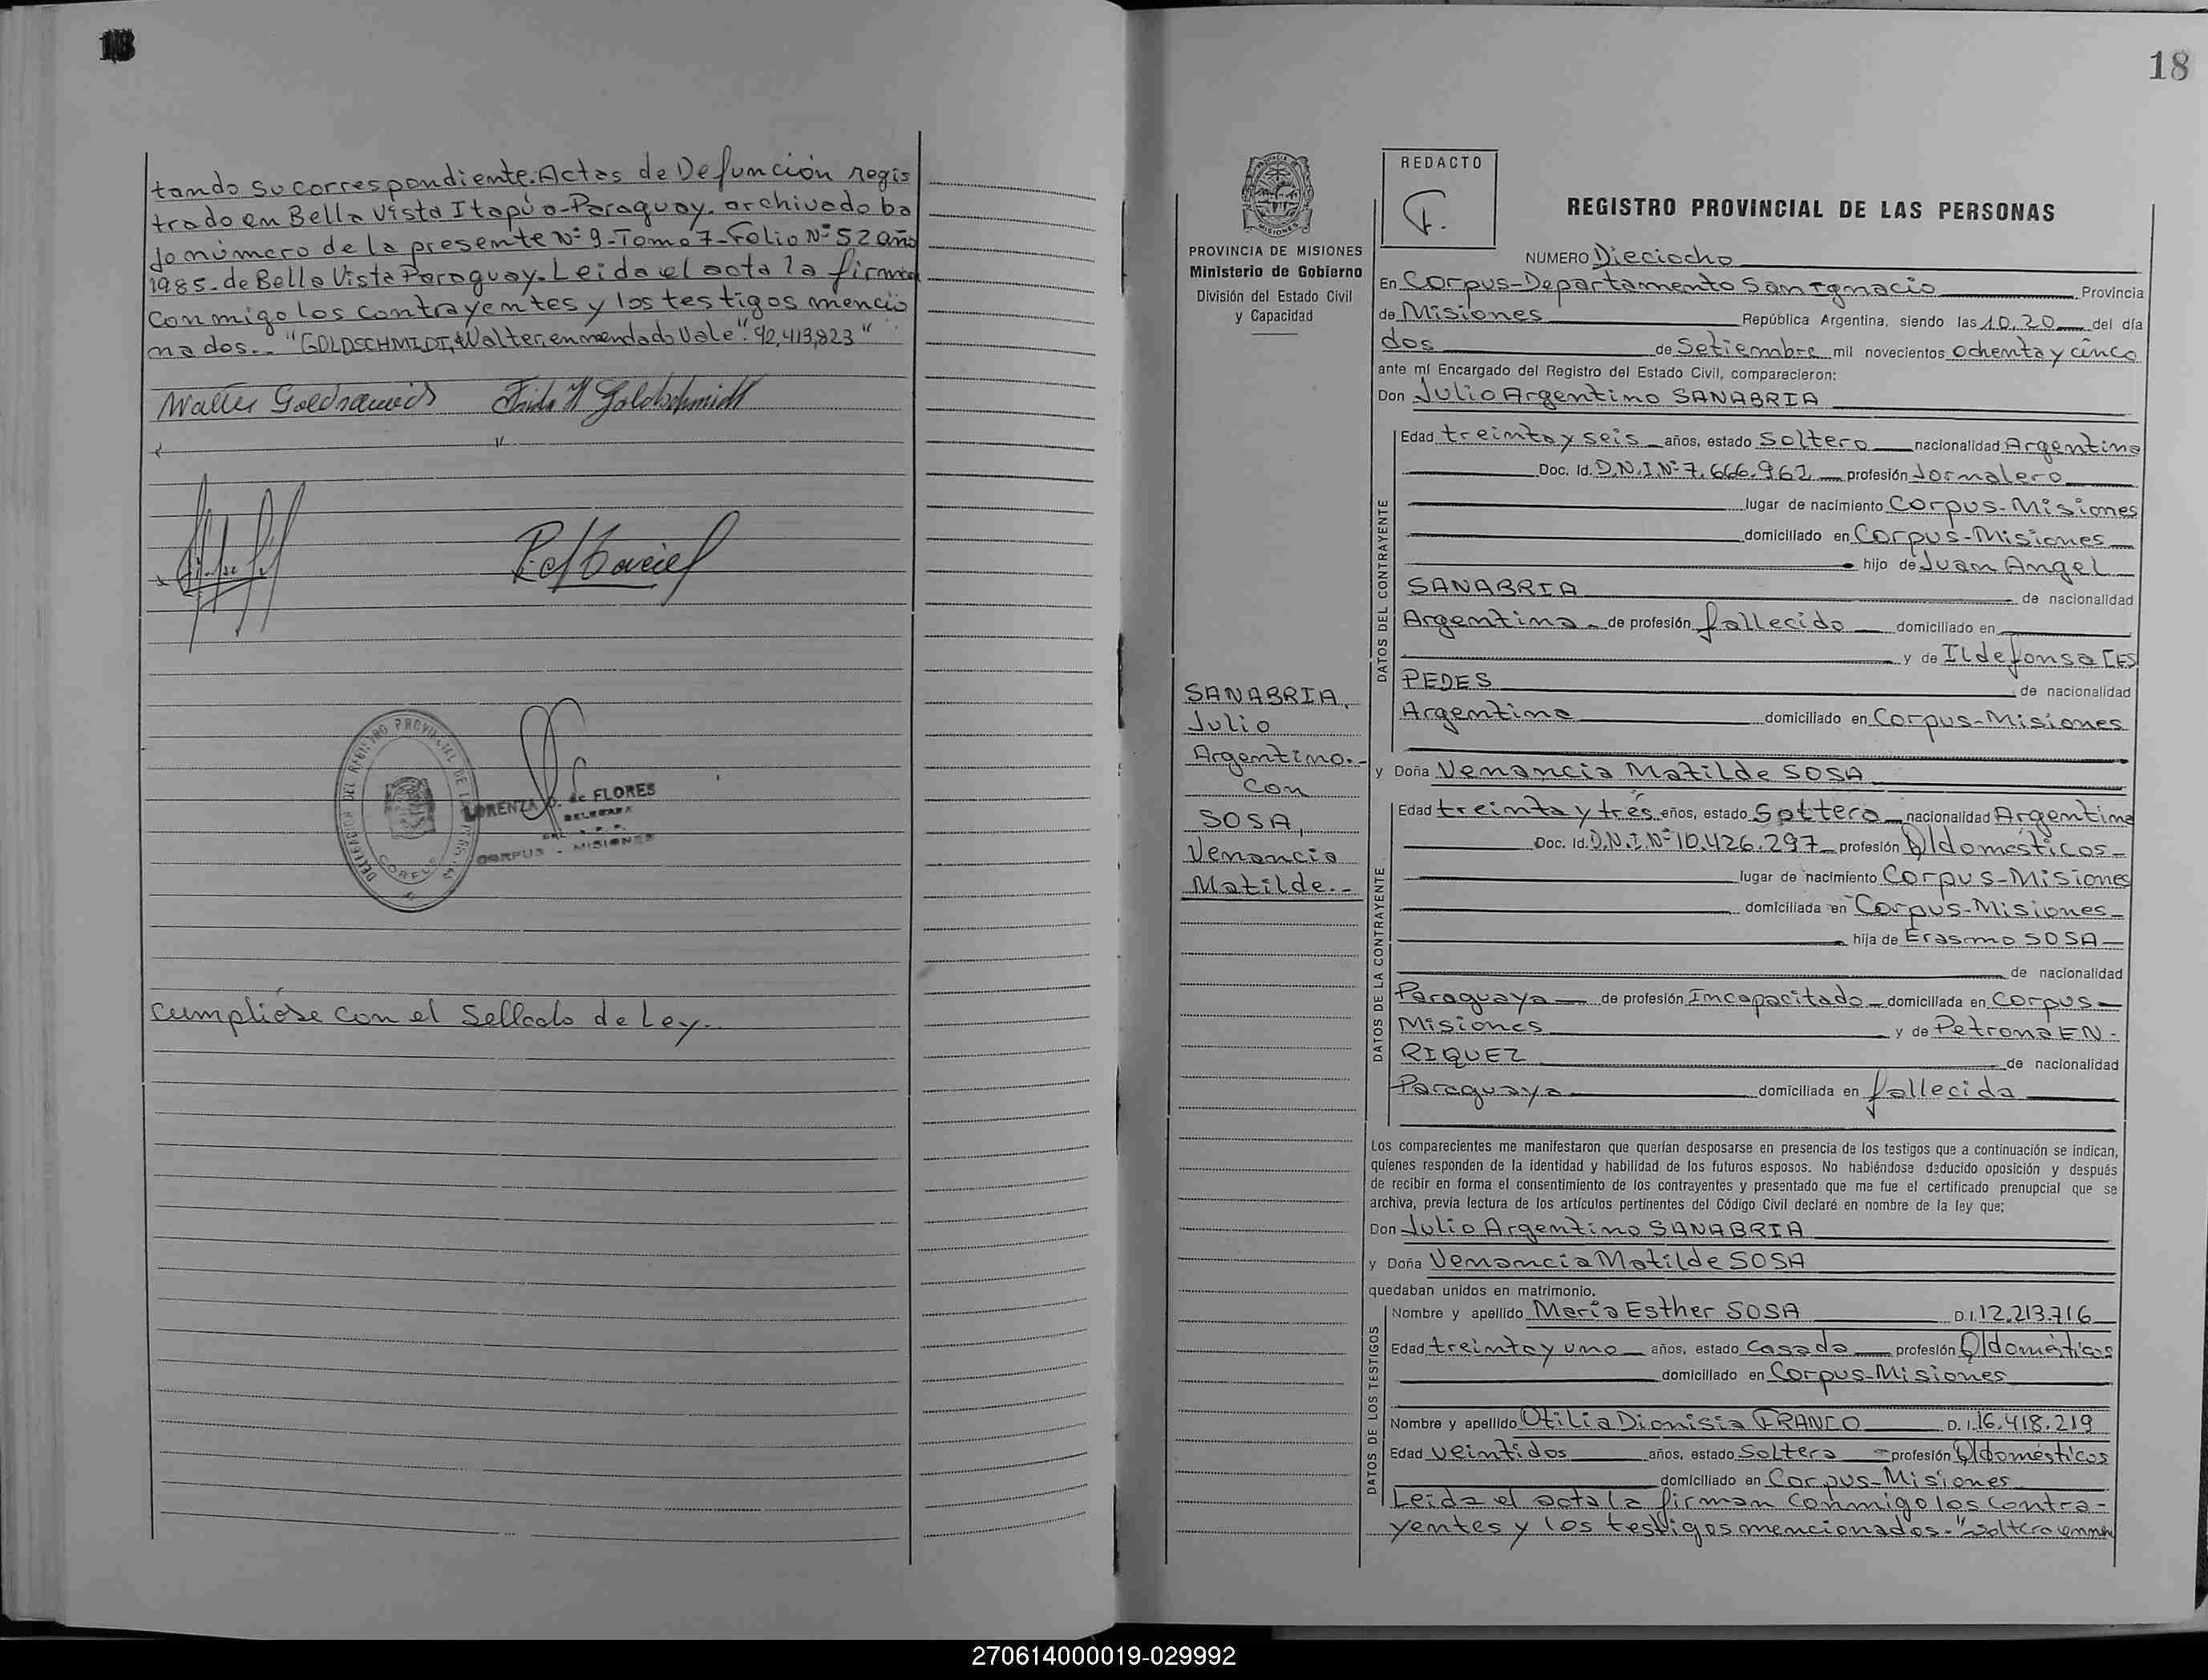 tando su correspondiente. Actas de Defunción regis
trado en Bella Vista Itapúa-Paraguay. archivado ba
jo número de la presente Nº 9-Tomo 7-Folio Nº 52 año
1985.-de Bella Vista Paraguay. Leida el acta la firman
conmigo los contrayentes y los testigos mencio
nados.- "GOLDSCHMIDT, Walter, enmendado Vale". "92,413,823"
LORENZA de FLORES
DELEGADA
CORPUS - MISIONES
DELEGACION DEL REGISTRO PROVINCIAL DE LAS PERSONAS
CORPUS
Cumpliose con el Sellado de Ley.-
18
PROVINCIA DE MISIONES
Ministerio de Gobierno
División del Estado Civil
y Capacidad
SANABRIA,
Julio
Argentino.-
Con
SOSA,
Venancia
Matilde.-
REDACTO
REGISTRO PROVINCIAL DE LAS PERSONAS
NUMERO Dieciocho
En Corpus-Departamento San Ignacio Provincia
de Misiones República Argentina, siendo las 10,20 del día
dos de Setiembre mil novecientos ochenta y cinco
ante mí Encargado del Registro del Estado Civil, comparecieron:
Don Julio Argentino SANABRIA
DATOS DEL CONTRAYENTE
Edad treinta y seis años, estado Soltero nacionalidad Argentina
Doc. Id. D.N.I.Nº 7.666.962 profesión Jornalero
lugar de nacimiento Corpus-Misiones
domiciliado en Corpus-Misiones
hijo de Juan Angel
SANABRIA de nacionalidad
Argentina de profesión fallecido domiciliado en
y de Ildefonsa CES
PEDES de nacionalidad
Argentina domiciliado en Corpus-Misiones
y Doña Venancia Matilde SOSA
DATOS DE LA CONTRAYENTE
Edad treinta y trés años, estado Soltera nacionalidad Argentina
Doc. Id. D.N.I.Nº 10.426.297 profesión Q/domésticos
lugar de nacimiento Corpus-Misiones
domiciliada en Corpus-Misiones
hija de Erasmo SOSA
de nacionalidad
Paraguaya de profesión Incapacitado domiciliada en Corpus
Misiones y de Petrona EN-
RIQUEZ de nacionalidad
Paraguaya domiciliada en fallecida
Los comparecientes me manifestaron que querían desposarse en presencia de los testigos que a continuación se indican,
quienes responden de la identidad y habilidad de los futuros esposos. No habiéndose deducido oposición y después
de recibir en forma el consentimiento de los contrayentes y presentado que me fue el certificado prenupcial que se
archiva, previa lectura de los artículos pertinentes del Código Civil declaré en nombre de la ley que;
Don Julio Argentino SANABRIA
y Doña Venancia Matilde SOSA
quedaban unidos en matrimonio.
DATOS DE LOS TESTIGOS
Nombre y apellido María Esther SOSA D.I. 12.213.716
Edad treinta y uno años, estado Casada profesión Q/domésticos
domiciliado en Corpus-Misiones
Nombre y apellido Otilia Dionisia FRANCO D.I. 16.418.219
Edad veintidos años, estado Soltera profesión Q/domésticos
domiciliado en Corpus-Misiones
Leida el acta la firman conmigo los contra-
yentes y los testigos mencionados.-"soltera enmen
270614000019-029992